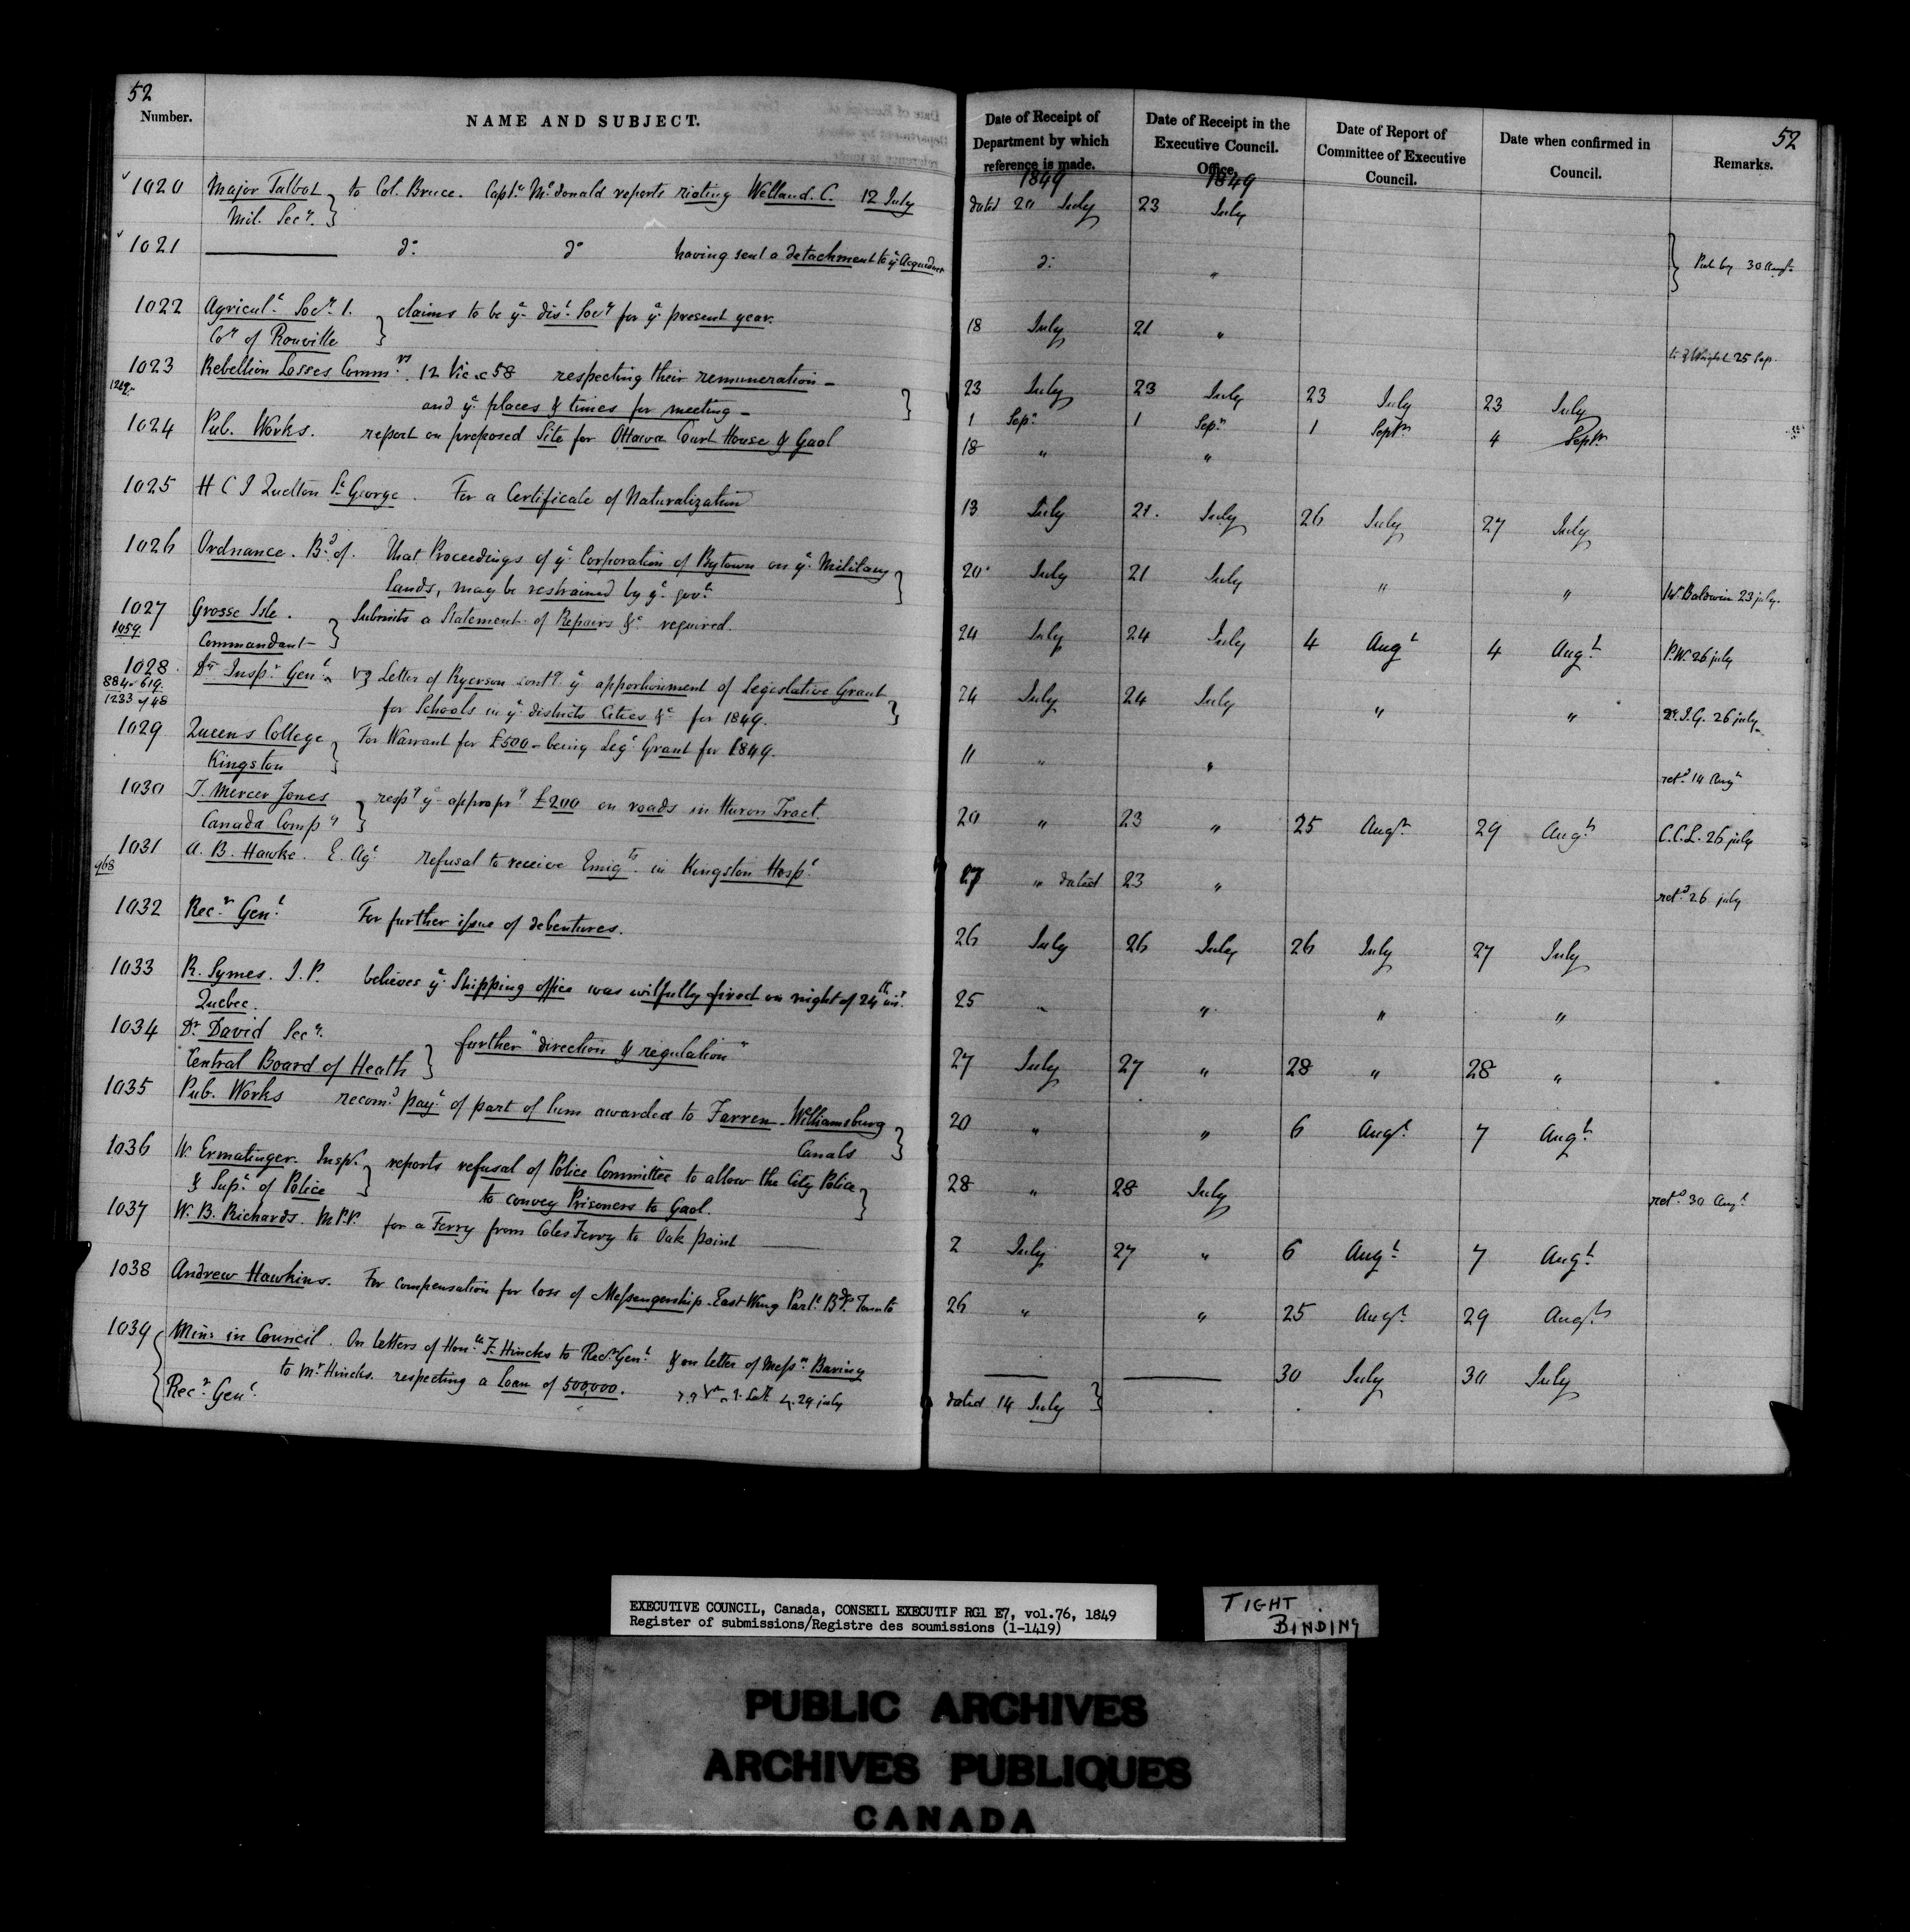 52
Number.
NAME AND SUBJECT.
Date of Receipt of Department by which reference is made.
Date of Receipt in the Executive Council. Office.
Date of Report of Committee of Executive Council.
Date when confirmed in Council.
Remarks.
52
1849 1849
1020 Major Talbot to Col. Bruce. Captn McDonald reports rioting Welland. C. 12 July dated 20 July 23 July
Mil. Secy.
1021 do do having sent a detachment to ye Aqueduct do "
30 Augt
1022 Agricult. Socy. 1. claims to be ye dist. Socy for ye present year. 18 July 21 "
Coy of Rouville
25 Sep.
1023 Rebellion Losses Commrs. 12 Vic. c 58 respecting their remuneration - 23 July 23 July 23 July 23 July
and ye places & times for meeting - 1 Sepr 1 Sepr 1 Septr 4 Septr
1024 Pub. Works. report on proposed Site for Ottawa Court House & Gaol 18 " "
1025 H C I Quetton St George. For a Certificate of Naturalization 13 July 21. July 26 July 27 July
1026 Ordnance. Bd of. That Proceedings of ye Corporation of Bytown on ye Military 20 July 21 July " " W. Baldwin 23 july.
Lands, may be restrained by ye govt
1027 Grosse Isle. Submits a Statement of Repairs &c required. 24 July 24 July 4 Augt 4 Augt P.W. 26 july
1059
Commandant
1028 Dy Inspr Genl Letter of Ryerson ye apportionment of Legislative Grant 24 July 24 July " " Dy. I. G. 26 july
884-619
1233 of 48
for Schools in ye districts Cities &c for 1849.
1029 Queens College For Warrant for £500 - being Leg. Grant for 1849. 11 " " retd 14 Augt
Kingston
1030 T. Mercer Jones respg ye appropn £200 on roads in Huron Tract 20 " 23 " 25 Augt 29 Augt C.C.L. 26 july
Canada Compy
1031 A. B. Hawke. E. Agt refusal to receive Emigts. in Kingston Hospl " dated 23 " retd 26 july
968
1032 Recr Genl For further issue of debentures. 26 July 26 July 26 July 27 July
1033 R. Symes. J. P. believes ye Shipping office was wilfully fired on night of 24th inst. 25 " " " "
Quebec.
1034 Dr David Secy. further "direction & regulation" 27 July 27 " 28 " 28 "
Central Board of Health
1035 Pub. Works recomd payt of part of sum awarded to Farren - Williamsburg 20 " " 6 Augt 7 Augt
Canals
1036 W. Ermatinger. Inspr. reports refusal of Police Committee to allow the City Police 28 " 28 July retd 30 Augt
& Supt of Police
to convey Prisoners to Gaol.
1037 W. B. Richards. M P.P. for a Ferry from Coles Ferry to Oak point 2 July 27 " 6 Augt 7 Augt
1038 Andrew Hawkins. For compensation for loss of Messengership - East Wing Parlt Bdgs Toronto 26 " " 25 Augt 29 Augt
1039 Mins in Council. On letters of Honble F. Hincks to Recr Genl & on letter of Messrs Baring 30 July 30 July
to Mr Hincks. respecting a loan of 500,000. 29 july
Recr Genl. dated 14 July
EXECUTIVE COUNCIL, Canada, CONSEIL EXECUTIF RG1 E7, vol.76, 1849
Register of submissions/Registre des soumissions (1-1419)
TIGHT
BINDING
PUBLIC ARCHIVES
ARCHIVES PUBLIQUES
CANADA